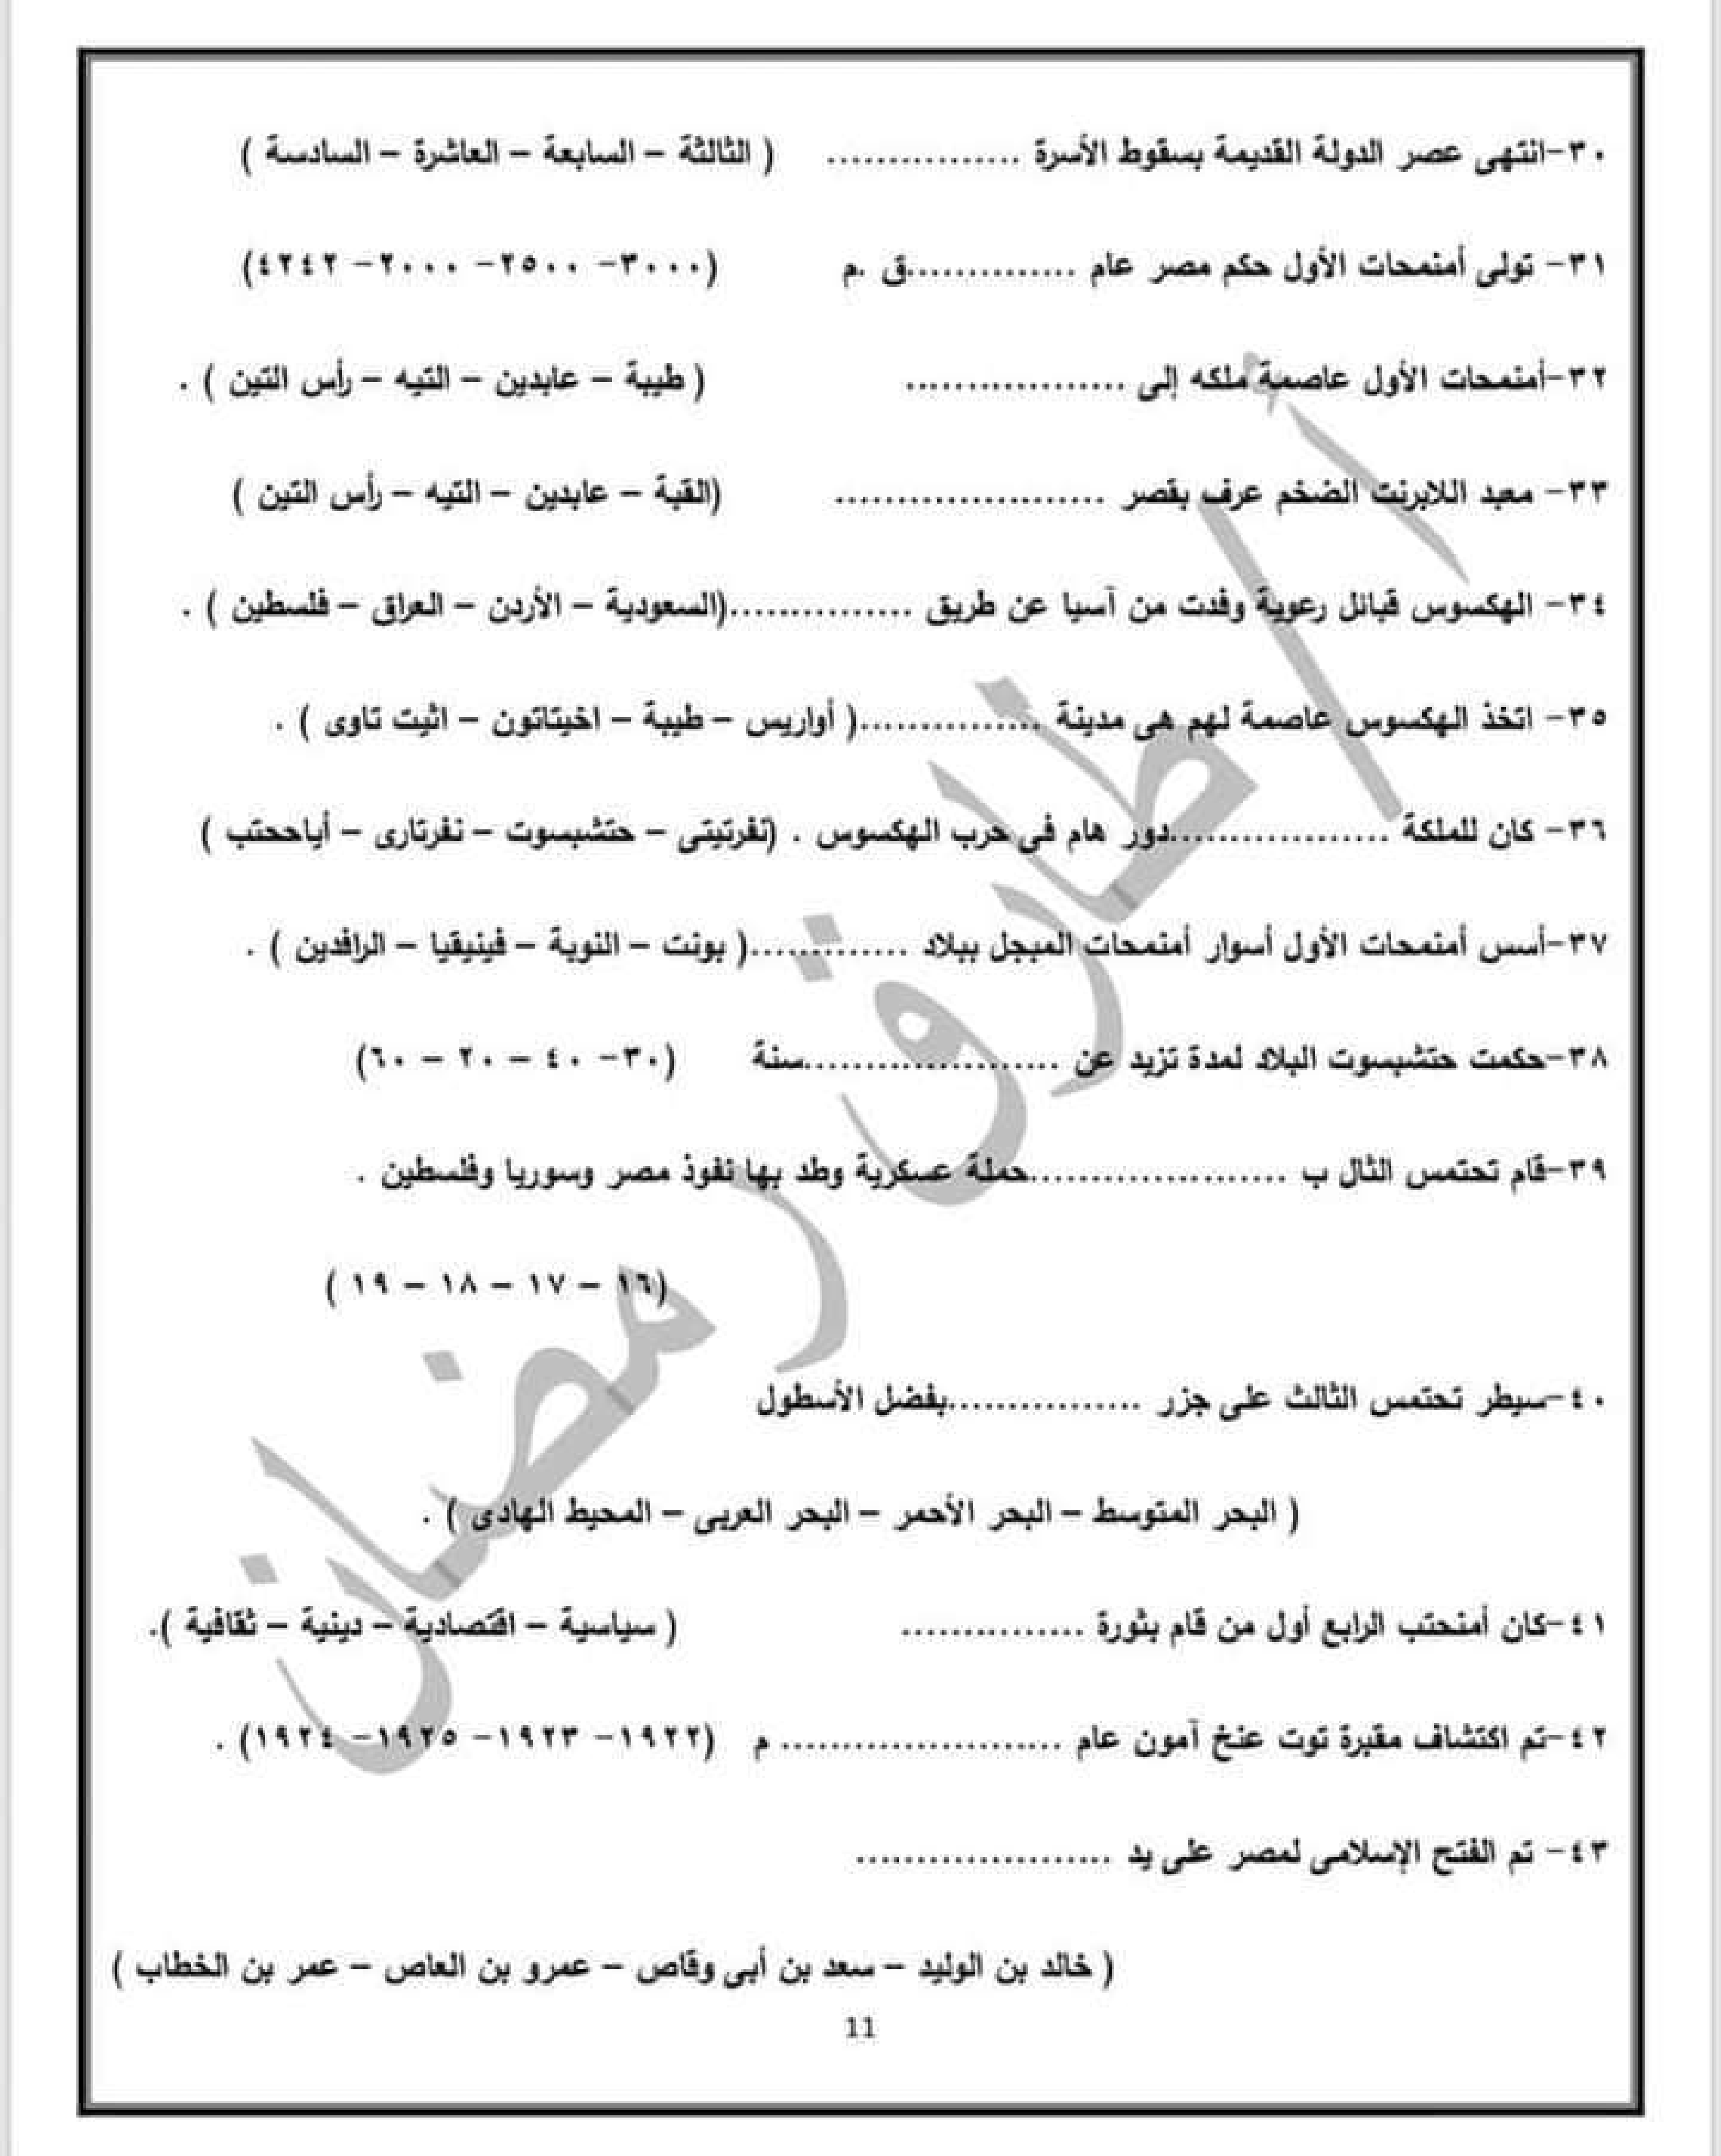 ٣٠-انتهى عصر الدولة القديمة بسقوط الأسرة ................ ( الثالثة – السابعة – العاشرة – السادسة )
٣١- تولى أمنمحات الأول حكم مصر عام ..............ق .م (٣٠٠٠- ٢٥٠٠- ٢٠٠٠- ٤٢٤٢)
٣٢-أمنمحات الأول عاصمة ملكه إلى .................. ( طيبة – عابدين – التيه – رأس التين ) .
٣٣- معبد اللابرنت الضخم عرف بقصر ...................... (القبة – عابدين – التيه – رأس التين )
٣٤- الهكسوس قبائل رعوية وفدت من آسيا عن طريق ...............(السعودية – الأردن – العراق – فلسطين ) .
٣٥- اتخذ الهكسوس عاصمة لهم هى مدينة ...............( أواريس – طيبة – اخيتاتون – اثيت تاوى ) .
٣٦- كان للملكة ..................دور هام فى حرب الهكسوس . (نفرتيتى – حتشبسوت – نفرتارى – أياححتب )
٣٧-أسس أمنمحات الأول أسوار أمنمحات المبجل ببلاد .............( بونت – النوبة – فينيقيا – الرافدين ) .
٣٨-حكمت حتشبسوت البلاد لمدة تزيد عن .....................سنة (٣٠- ٤٠ – ٢٠ – ٦٠)
٣٩-قام تحتمس الثال ب .....................حملة عسكرية وطد بها نفوذ مصر وسوريا وفلسطين .
(١٦ – ١٧ – ١٨ – ١٩ )
٤٠-سيطر تحتمس الثالث على جزر ................بفضل الأسطول
( البحر المتوسط – البحر الأحمر – البحر العربى – المحيط الهادى ) .
٤١-كان أمنحتب الرابع أول من قام بثورة ............... ( سياسية – اقتصادية – دينية – ثقافية ).
٤٢-تم اكتشاف مقبرة توت عنخ آمون عام ....................... م (١٩٢٢- ١٩٢٣- ١٩٢٥- ١٩٢٤) .
٤٣- تم الفتح الإسلامى لمصر على يد .....................
( خالد بن الوليد – سعد بن أبى وقاص – عمرو بن العاص – عمر بن الخطاب )
11
أ / طارق رمضان